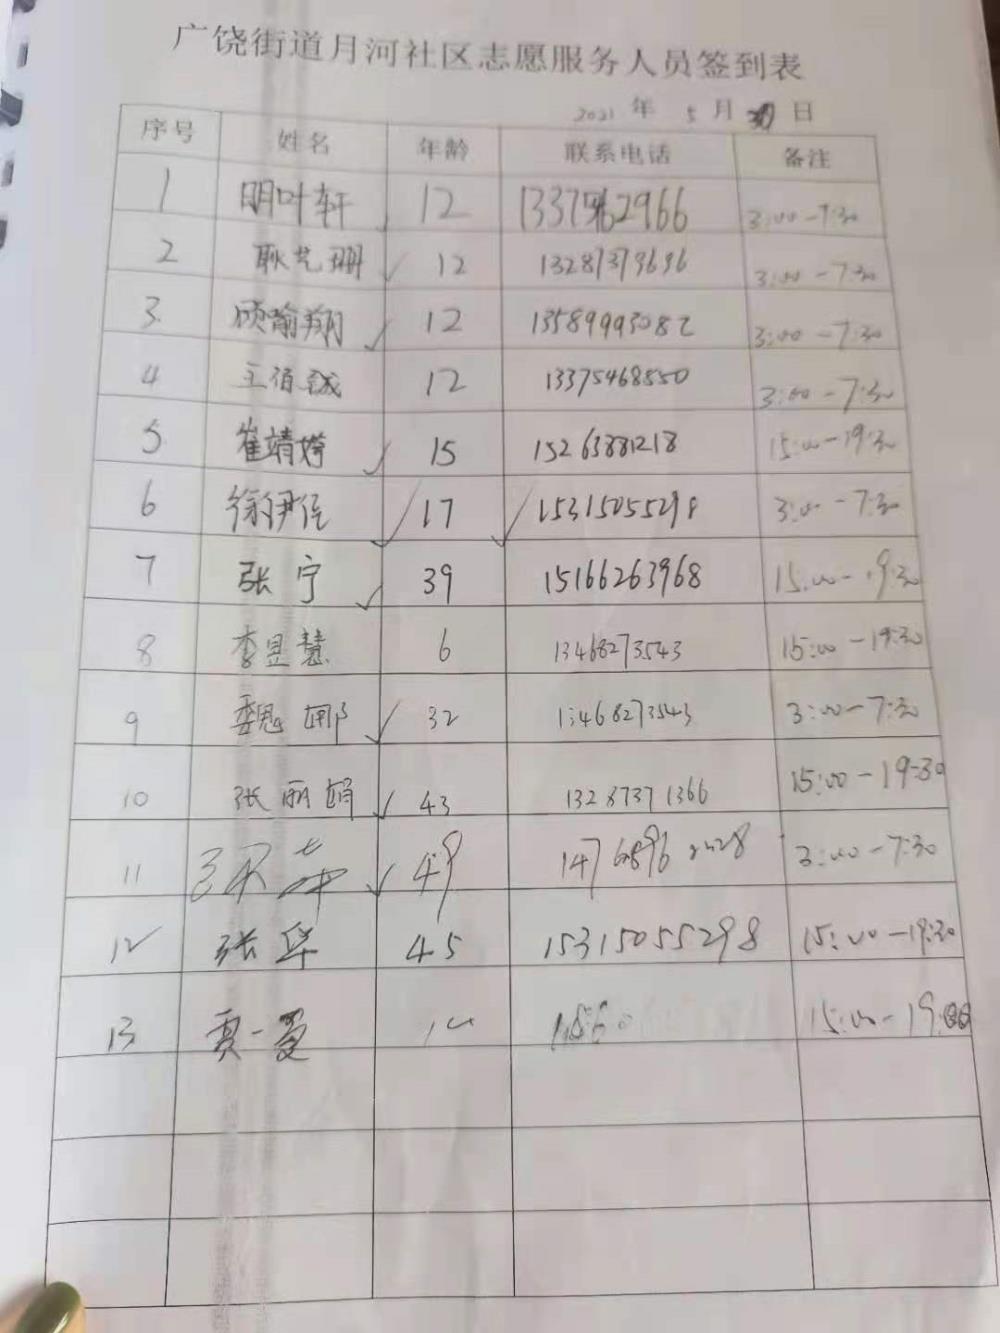 广饶街道月河社区志愿服务人员签到表
2021 年 5 月 日
序号 姓名 年龄 联系电话 备注
1 明叶轩 12 3:00-7:30
2 耿艺珊 12 13287379696 3:00-7:30
3 顾翰翔 12 13589993082 3:00-7:30
4 王佰诚 12 13375468550 3:00-7:30
5 崔靖婷 15 15263881218 15:00-19:30
6 徐伊佳 17 15315055298 3:00-7:30
7 张宁 39 15166263968 15:00-19:30
8 李昱慧 6 13468273543 15:00-19:30
9 魏娜 32 13468273543 3:00-7:30
10 张丽娟 43 13287371366 15:00-19:30
11 49 3:00-7:30
12 张华 45 15315055298 15:00-19:30
13 贾一曼 15:00-19: